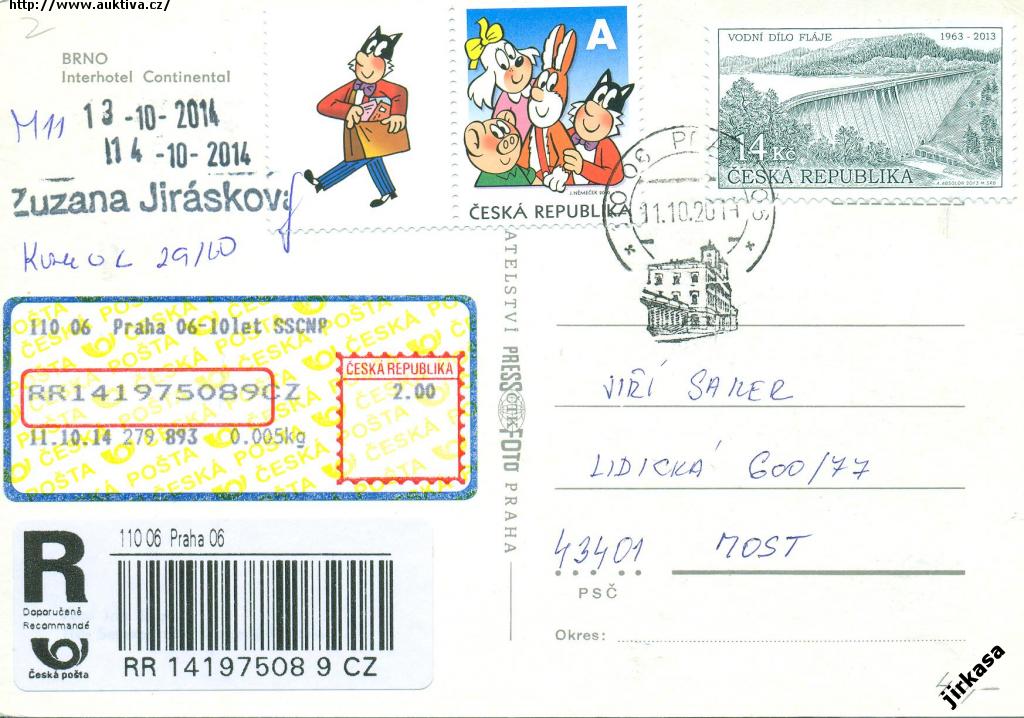 http://www.auktiva.cz/
2
BRNO
Interhotel Continental
M11
13-10-2014
14-10-2014
Zuzana Jirásková
29/60
A
J. NĚMEČEK
ČESKÁ REPUBLIKA
VODNÍ DÍLO FLÁJE 1963 - 2013
14 Kč
ČESKÁ REPUBLIKA
A. ABSOLON 2013 M. SRB
110 06 PRAHA 06
11.10.2014
110 06 Praha 06-10let SSCNP
ČESKÁ REPUBLIKA
RR141975089CZ
2.00
11.10.14 279 893 0.005kg
ČESKÁ POŠTA
R
Doporučeně
Recommandé
Česká pošta
110 06 Praha 06
RR 14197508 9 CZ
ATELSTVÍ PRESSFOTO PRAHA
ČTK
JIŘÍ SAILER
LIDICKÁ 600/77
43401 MOST
PSČ
Okres:
jirkasa